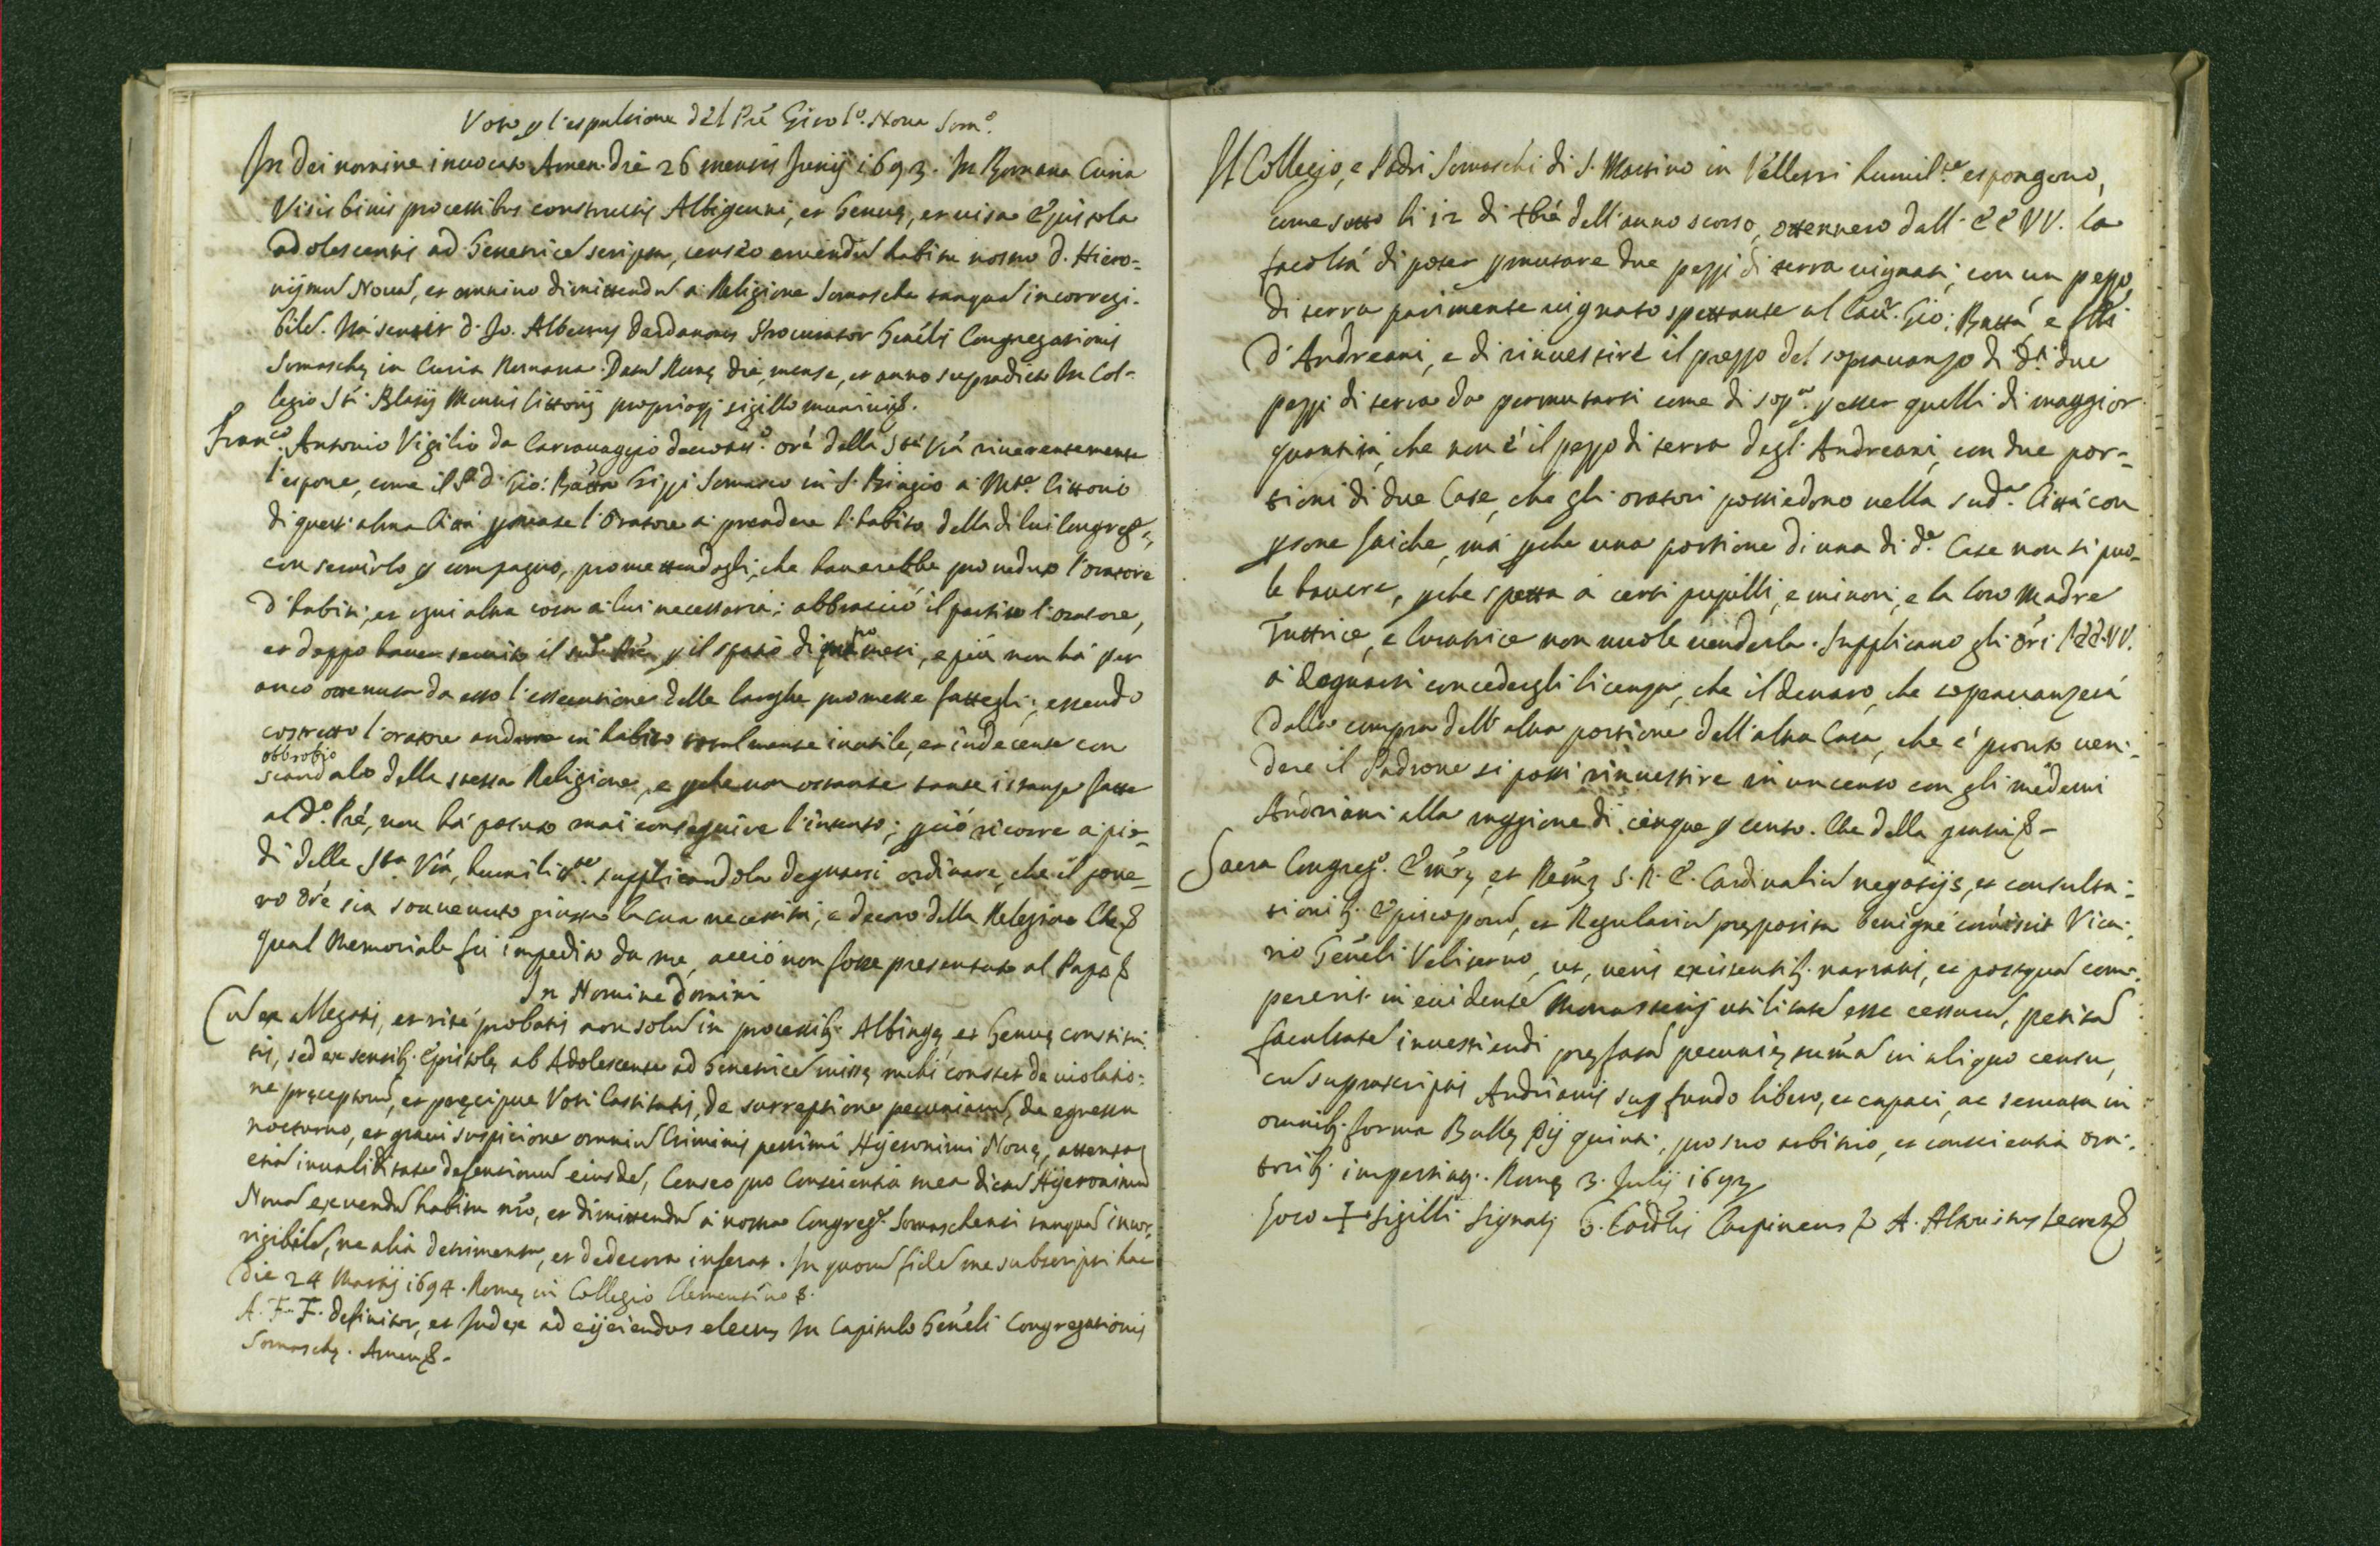 Voto p l'espulsione del Prē Girol.º Nova Som.º
In Dei nomine invocato Amen. Die 26 mensis Junij 1693. In Romana Curia
Visis binis processibus constructis Albigauni, et Genuę, et visa Epistola
adolescentis ad Genetricē scripta, censeo exuendū habitu nostro d. Hiero-
nijmū Novā, et omnino dimittendū a Religione Somascha tanquā incorregi-
bilē. Ita sentit d. Jo. Albertus Dardanonus Procurator Genēlis Congregationis
Somaschę in Curia Romana. Datū Romę die, mense, et anno supradicto In Col-
legio Sti Blasij Montis Cittorij proprioq; sigillo munivi &.
Franc.º Antonio Vigilio da Carravaggio devotis.º orē della Stà Vrà riverentemente
l'espone, come il P. d. Gio: Batta Grippi Somasco in S. Biagio a Mte Cittorio
di quest'alma Città persuase l'Oratore a prendere l'habito della di lui Congreg.
con servirlo p compagno, promettendogli, che haverebbe proveduto l'oratore
d'habiti, et ogni altra cosa a lui necessaria; abbracciò il partito l'oratore,
et doppo haver servito il sud.º Prē p il spatio di mesi, e più non hà per
anco ottenuta da esso l'essecutione delle larghe promesse fattegli; essendo
costretto l'oratore andare in habito totalmente inutile, et indecente con
obbrobio
scandalo della stessa Religione, e pche non ostante tante istanze fatte
al d.º Prē, non hà potuto mai conseguire l'intento; pciò ricorre a pie-
di della Sta Vrà, humilis.te supplicandola degnarsi ordinare, che il pove-
ro Orē sia sovvenuto giusta la sua necessità, e decoro della Relegione Che &
Qual Memoriale fù impedito da me, acciò non fosse presentato al Papa &
In Nomine Domini
Cū ex allegatis, et ritè probatis non solū in processib; Albingę et Genuę constitu-
tis, sed ex sensib; Epistolę ab Adolescente ad Genetricē missę mihi constet de violatio-
ne pręceptorū, et pręcipue Voti Castitatis, de surreptione pecuniarū, de egressu
nocturno, et gravi suspicione omniū Criminis pessimi Hijeronimi Novę, attenta
etiā invaliditate defensionū eiusdē, Censeo pro Conscientia mea dictū Hijeronimū
Novā exuendū habitu nrō, et dimittendū à nostra Congreg.e Somaschensi tanquā incor-
rigibilē, ne alia detrimenta, et dedecora inferat. In quorū fidē me subscripsi hac
Die 24 Martij 1694. Romę in Collegio Clementino &.
A. F. F. Definitor, et Judex ad eijciendos electus In Capitulo Genēli Congregationis
Somaschę. Amen &-
Il Collegio, e Padri Somaschi di S. Martino in Velletri humil.te espongono,
come sotto li 12 di 8brē dell'anno scorso, ottennero dall' EE VV. la
facoltà di poter pmutare due pezzi di terra vignati, con un pezzo
di terra parimente vignato spettante al Cav.r Gio: Battā, e flli
d'Andreani, e di rinvestire il prezzo del sopravanzo di d.ti due
pezzi di terra da permutarsi come di sop.a p esser quelli di maggior
quantità, che non è il pezzo di terra degl'Andreani, con due por-
tioni di due Case, che gli oratori possiedono nella sud.a Città con
psone laiche, mà pche una portione di una di d.e Case non si puo-
le havere, pche spetta à certi pupilli, e minori, e la loro Madre
Tuttrice, e Curatrice non vuole venderla. Supplicano gli orī l'EE. VV.
à degnarsi concedergli licenza, che il denaro, che sopravanzerà
dalla compra dell'altra portione dell'altra Casa, che è pronto ven-
dere il Padrone si possi rinvestire in un censo con gli medemi
Andriani alla raggione di cinque p cento. Che della gratia &-
Sacra Congreg.º Emōrū, et Remōrū S. R. E. Cardinaliū negotijs, et consulta-
tionib; Episcoporū, et Regulariū pręposita benignè comisit Vica-
rio Genēli Veliterno, ut, veris existentib; narratis, et postquā com-
pererit in evidentē Monasterij utilitatē esse cessurā, petitā
facultatē investiendi pręfatā pecunię sumā in aliquo censu,
cū suprascriptis Andrianis sup fundo libero, et capaci, ac servata in
omnib; forma Bullę Pij quinti, pro suo arbitrio, et conscientia ora-
torib; impertiat. Romę 3. Julij 1693
Loco + sigilli Signatis G. Cardlis Carpineus & A. Altovitus secret. &